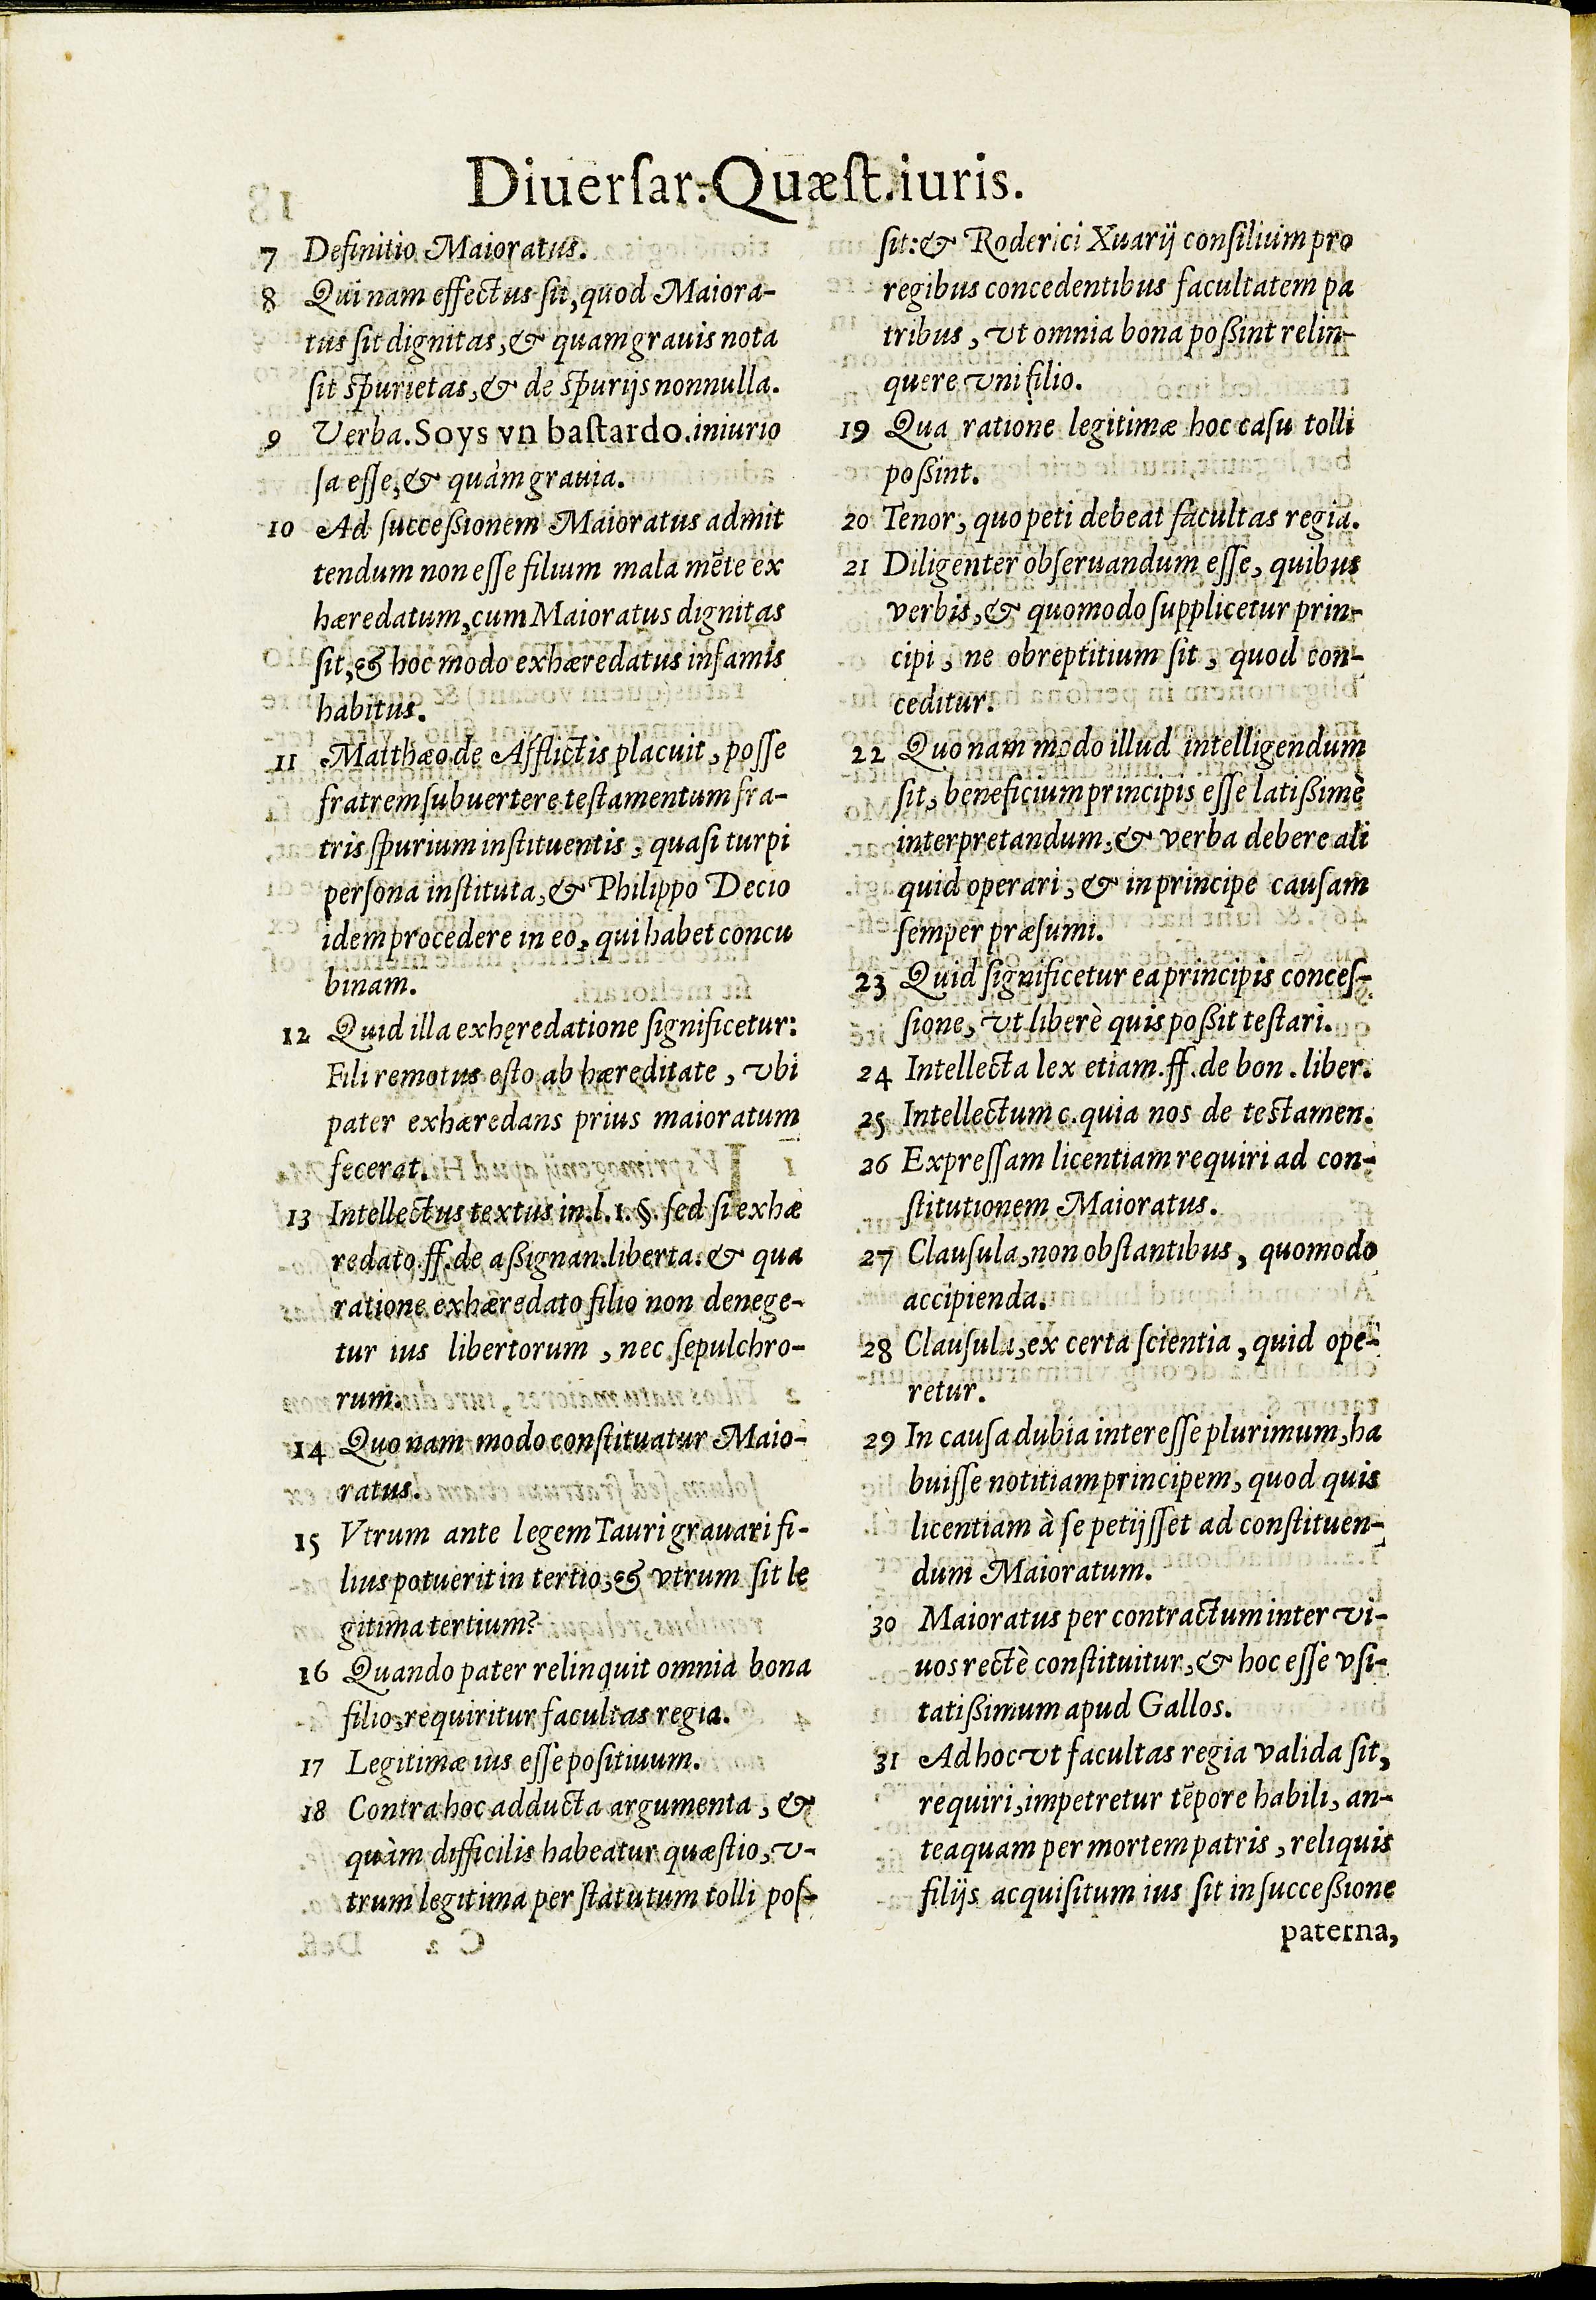 Diuerſar. Quæſt. iuris.
7 Definitio Maioratus.
8 Qui nam effectus ſit, quod Maiora-
tus ſit dignitas, & quam grauis nota
ſit ſpurietas, & de ſpurijs nonnulla.
9 Verba. Soys vn baſtardo. iniurio
ſa eſſe, & quàm grauia.
10 Ad ſucceßionem Maioratus admit
tendum non eſſe filium mala mēte ex
hæredatum, cum Maioratus dignitas
ſit, & hoc modo exhæredatus infamis
habitus.
11 Matthæo de Afflictis placuit, poſſe
fratrem ſubuertere teſtamentum fra-
tris ſpurium inſtituentis, quaſi turpi
perſona inſtituta, & Philippo Decio
idem procedere in eo, qui habet concu
binam.
12 Quid illa exhęredatione ſignificetur:
Fili remotus eſto ab hæreditate, vbi
pater exhæredans prius maioratum
fecerat.
13 Intellectus textus in. l. 1. §. ſed ſi exhæ
redato. ff. de aßignan. liberta. & qua
ratione exhæredato filio non denege-
tur ius libertorum, nec ſepulchro-
rum.
14 Quo nam modo conſtituatur Maio-
ratus.
15 Vtrum ante legem Tauri grauari fi-
lius potuerit in tertio, & vtrum ſit le
gitima tertium?
16 Quando pater relinquit omnia bona
filio, requiritur facultas regia.
17 Legitimæ ius eſſe poſitiuum.
18 Contra hoc adducta argumenta, &
quàm difficilis habeatur quæſtio, v-
trum legitima per ſtatutum tolli poſ-
ſit: & Roderici Xuarij conſilium pro
regibus concedentibus facultatem pa
tribus, vt omnia bona poßint relin-
quere vni filio.
19 Qua ratione legitimæ hoc caſu tolli
poßint.
20 Tenor, quo peti debeat facultas regia.
21 Diligenter obſeruandum eſſe, quibus
verbis, & quomodo ſupplicetur prin-
cipi, ne obreptitium ſit, quod con-
ceditur.
22 Quo nam modo illud intelligendum
ſit, beneficium principis eſſe latißimè
interpretandum, & verba debere ali
quid operari, & in principe cauſam
ſemper præſumi.
23 Quid ſignificetur ea principis conceſ-
ſione, vt liberè quis poßit teſtari.
24 Intellecta lex etiam. ff. de bon. liber.
25 Intellectum c. quia nos de teſtamen.
26 Expreſſam licentiam requiri ad con-
ſtitutionem Maioratus.
27 Clauſula, non obſtantibus, quomodo
accipienda.
28 Clauſula, ex certa ſcientia, quid ope-
retur.
29 In cauſa dubia intereſſe plurimum, ha
buiſſe notitiam principem, quod quis
licentiam à ſe petijſſet ad conſtituen-
dum Maioratum.
30 Maioratus per contractum inter vi-
uos rectè conſtituitur, & hoc eſſe vſi-
tatißimum apud Gallos.
31 Ad hoc vt facultas regia valida ſit,
requiri, impetretur tēpore habili, an-
teaquam per mortem patris, reliquis
filijs acquiſitum ius ſit in ſucceßione
paterna,